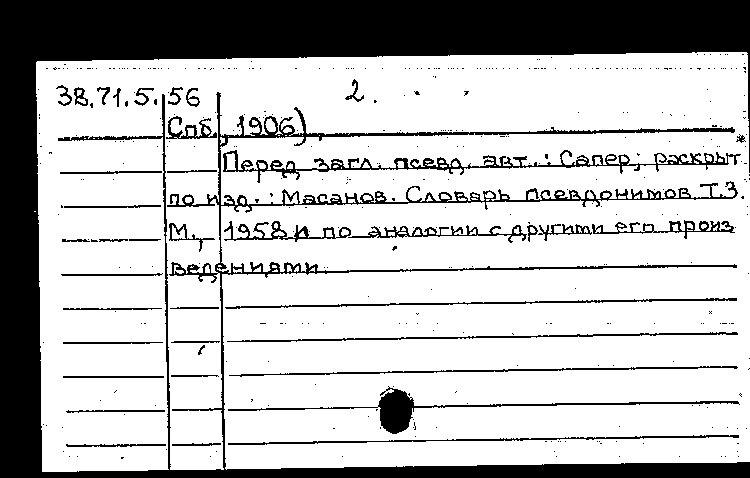 38.71.5.56 2.
Спб., 1906).
Перед загл. псевд. авт.: Сапер; раскрыт
по изд.: Масанов. Словарь псевдонимов Т.3.
М., 1958 и по аналогии с другими его произ
ведениями